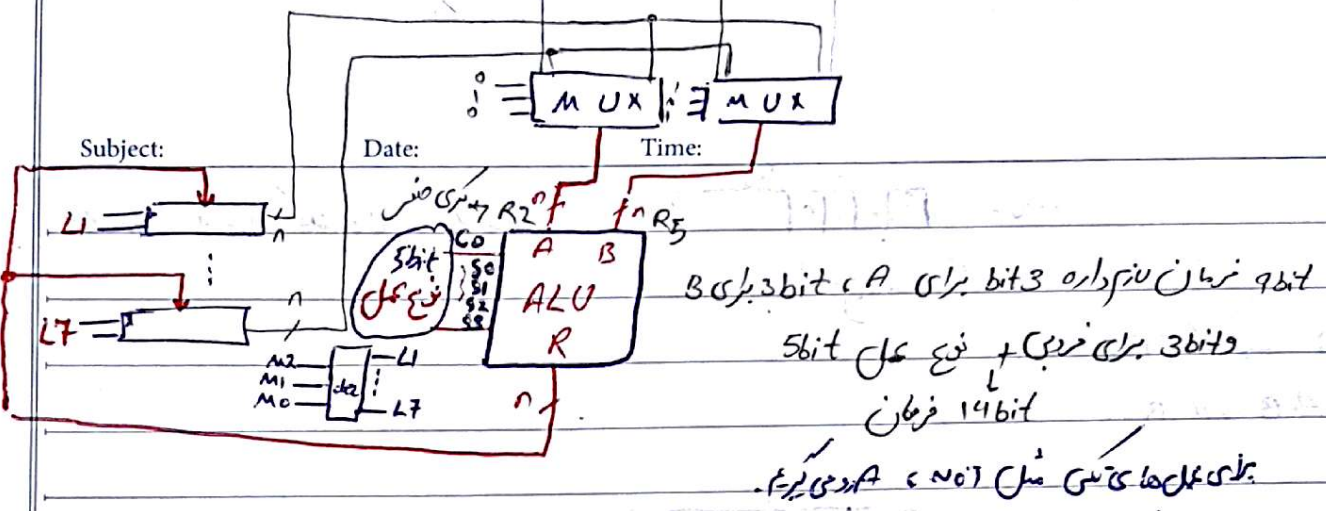 MUX MUX
Subject: Date: Time:
L1 n
R2 R5
5bit
نوع عمل
C0 S0 S1 S2 S3
A B
ALU
R
n n n n
L7
M2 M1 M0
dec
L1 L7
9bit فرمان نیاز داره 3bit برای A ، 3bit برای B
و 3bit برای خروجی + نوع عمل 5bit
14bit فرمان
برای عمل های تکی مثل NOT ، A رو می گیریم.